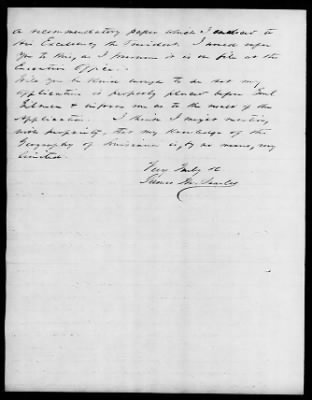 a recommendatory paper which I enclosed to
His Excellency the President. I would refer
you to this, as I presume it is on file at the
Executive Office.
Will you be kind enough to see that my
application is properly placed before Genl
& inform me as to the result of the
Application. I think I might mention,
with propriety, that my Knowledge of the
Geography of Louisiana is, by no means, very
limited.
Very Truly &c
James M.